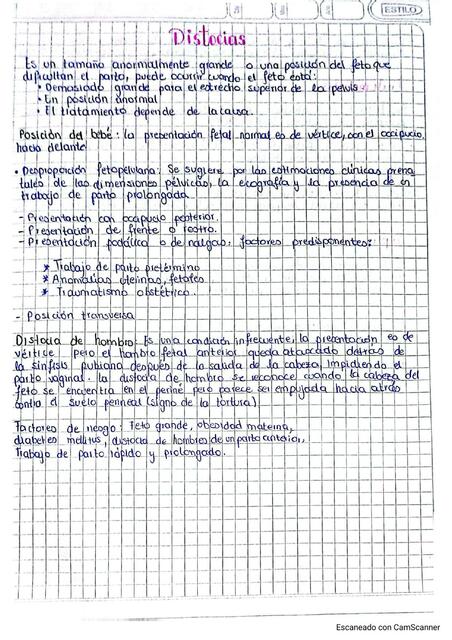 ESTILO
Distocias
Es un tamaño anormalmente grande o una posición del feto que
dificultan el parto, puede ocurrir cuando el feto está:
• Demasiado grande para el estrecho superior de la pelvis
• En posición anormal
• El tratamiento depende de la causa.
Posición del bebé: la presentación fetal normal es de vértice, con el occipucio
hacia delante
• Desproporción fetopelviana: Se sugiere por las estimaciones clínicas prena
tales de las dimensiones pélvicas, la ecografía y la presencia de un
trabajo de parto prolongada.
- Presentación con occipucio posterior.
- Presentación de frente o rostro.
- Presentación podálica o de nalgas: factores predisponentes:
* Trabajo de parto pretérmino
* Anomalías uterinas, fetales
* Traumatismo obstétrico.
- Posición transversa
Distocia de hombro: Es una condición infrecuente, la presentación es de
vértice pero el hombro fetal anterior queda atascado detrás de
la sínfisis pubiana después de la salida de la cabeza, impidiendo el
parto vaginal. la distocia de hombro se reconoce cuando la cabeza del
feto se encuentra en el periné pero parece ser empujada hacia atrás
contra el suelo perineal (signo de la tortura)
Factores de riesgo: Feto grande, obesidad materna,
diabetes mellitus, distocia de hombros de un parto anterior,
Trabajo de parto rápido y prolongado.
Escaneado con CamScanner